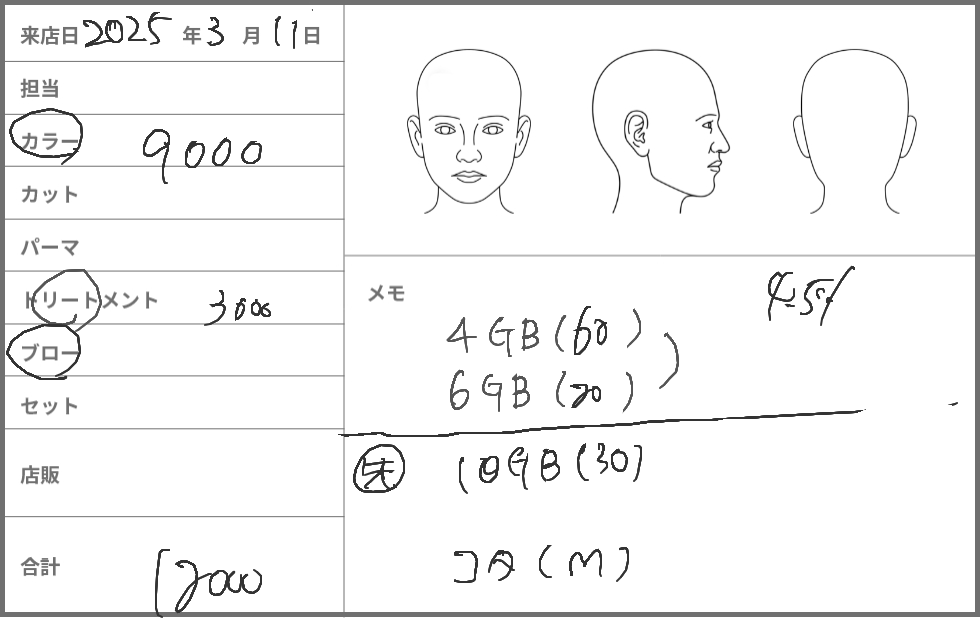 来店日 2025 年 3 月 11 日
担当
カラー 9000
カット
パーマ
トリートメント 3000
ブロー
セット
店販
合計 12000
メモ
4.5%
4GB(60)
6GB(20)
10GB(30)
コタ(M)